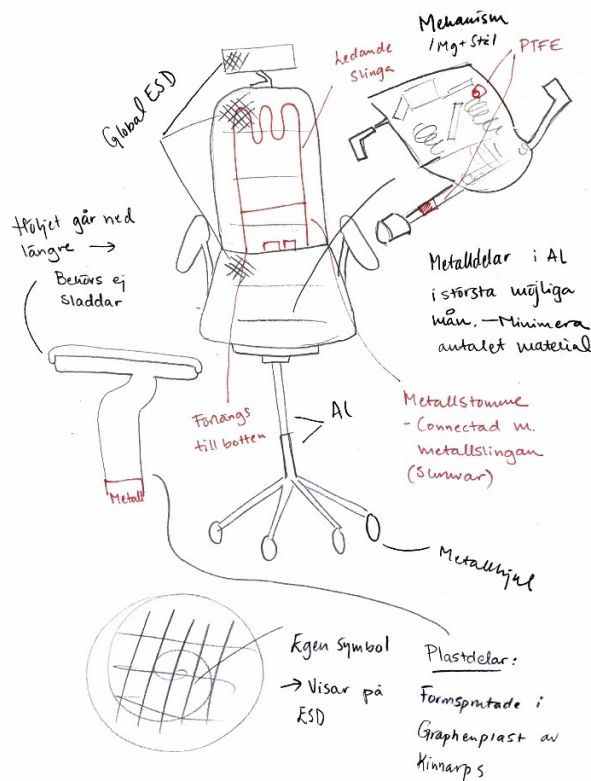 Mekanism
/Mg+Stål
PTFE
Ledande
slinga
Global ESD
Höljet går ned
längre →
Behövs ej
sladdar
Metalldelar i Al
i största möjliga
mån. – Minimera
antalet material
Metallstomme
- Connectad m.
metallslingan
Förlängs
till botten
Al
Metall
Metallhjul
Egen symbol
→ Visar på
ESD
Plastdelar:
Formsprutade i
Graphenplast av
Kinnarps